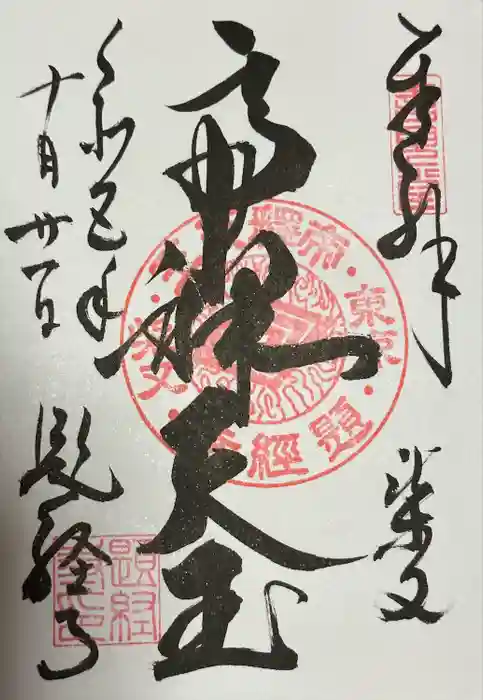 奉拝
柴又
帝釈天王
令和五年
十月廿一日
題経寺
東京
柴又
帝釋
題経寺